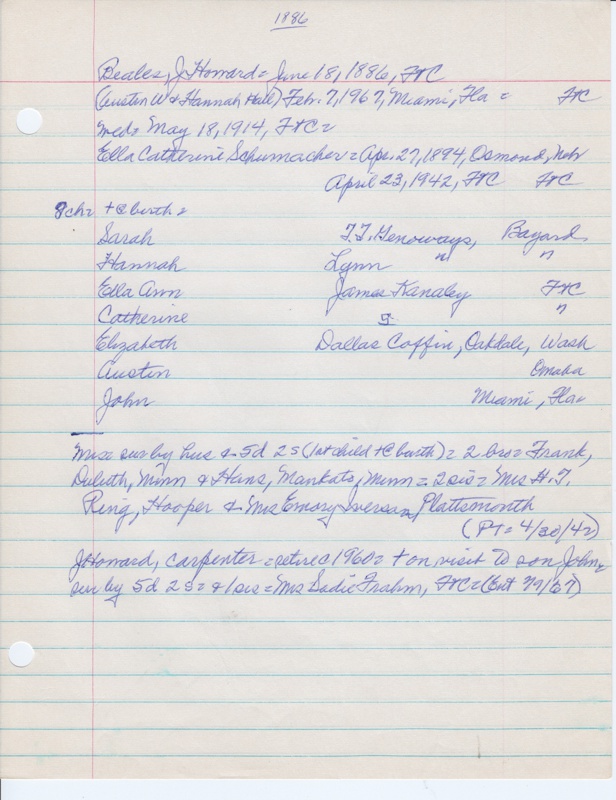 1886
Beales, J Howard = June 18, 1886, FtC
(Austin W & Hannah Hall) Feb. 7, 1967, Miami, Fla = FtC
wed = May 18, 1914, FtC =
Ella Catherine Schumacher = Apr. 27, 1894, Osmond, Nebr
April 23, 1942, FtC FtC
8 ch = + @ birth =
Sarah T.T. Genoways, Bayard
Hannah Lynn " "
Ella Ann James Kanaley FtC
Catherine "
Elizabeth Dallas Coffin, Oakdale, Wash
Austin Omaha
John Miami, Fla =
Mrs = sur by hus & 5d 2s (1st child + @ birth) = 2 bro = Frank,
Duluth, Minn & Hans, Mankato, Minn = 2 sis = Mrs H.T.
Ring, Hooper & Mrs Emory Plattsmouth
(PT = 4/30/42)
J Howard, carpenter = retired 1960 = + on visit to son John =
sur by 5d 2s = & 1 sis = Mrs Sadie Frahm, FtC =